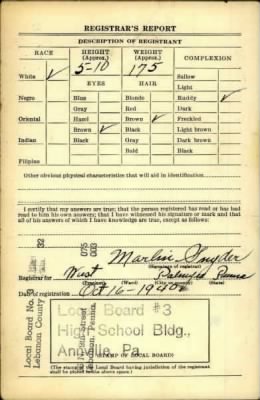 REGISTRAR'S REPORT
DESCRIPTION OF REGISTRANT
RACE HEIGHT (Approx.) WEIGHT (Approx.) COMPLEXION
White ✓ 5-10 175 Sallow
EYES HAIR Light
Negro Blue Blonde Ruddy ✓
Gray Red Dark
Oriental Hazel Brown ✓ Freckled
Brown ✓ Black Light brown
Indian Black Gray Dark brown
Bald Black
Filipino
Other obvious physical characteristics that will aid in identification
I certify that my answers are true; that the person registered has read or has had
read to him his own answers; that I have witnessed his signature or mark and that
all of his answers of which I have knowledge are true, except as follows:
Local Board No. 3
Lebanon County
32
075
003
Lebanon, Penna.
Marlin Snyder
(Signature of registrar)
Registrar for West Palmyra Penna
(Precinct) (City or county) (State)
Date of registration Oct 16-1940
Local Board #3
High School Bldg.,
Annville, Pa.
(STAMP OF LOCAL BOARD)
(The stamp of the Local Board having jurisdiction of the registrant
shall be placed in the above space.)